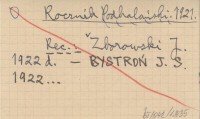 Rocznik Podhalański. 1921.
Rec.: Zborowski J.
1922 d. – BYSTROŃ J. S.
1922...